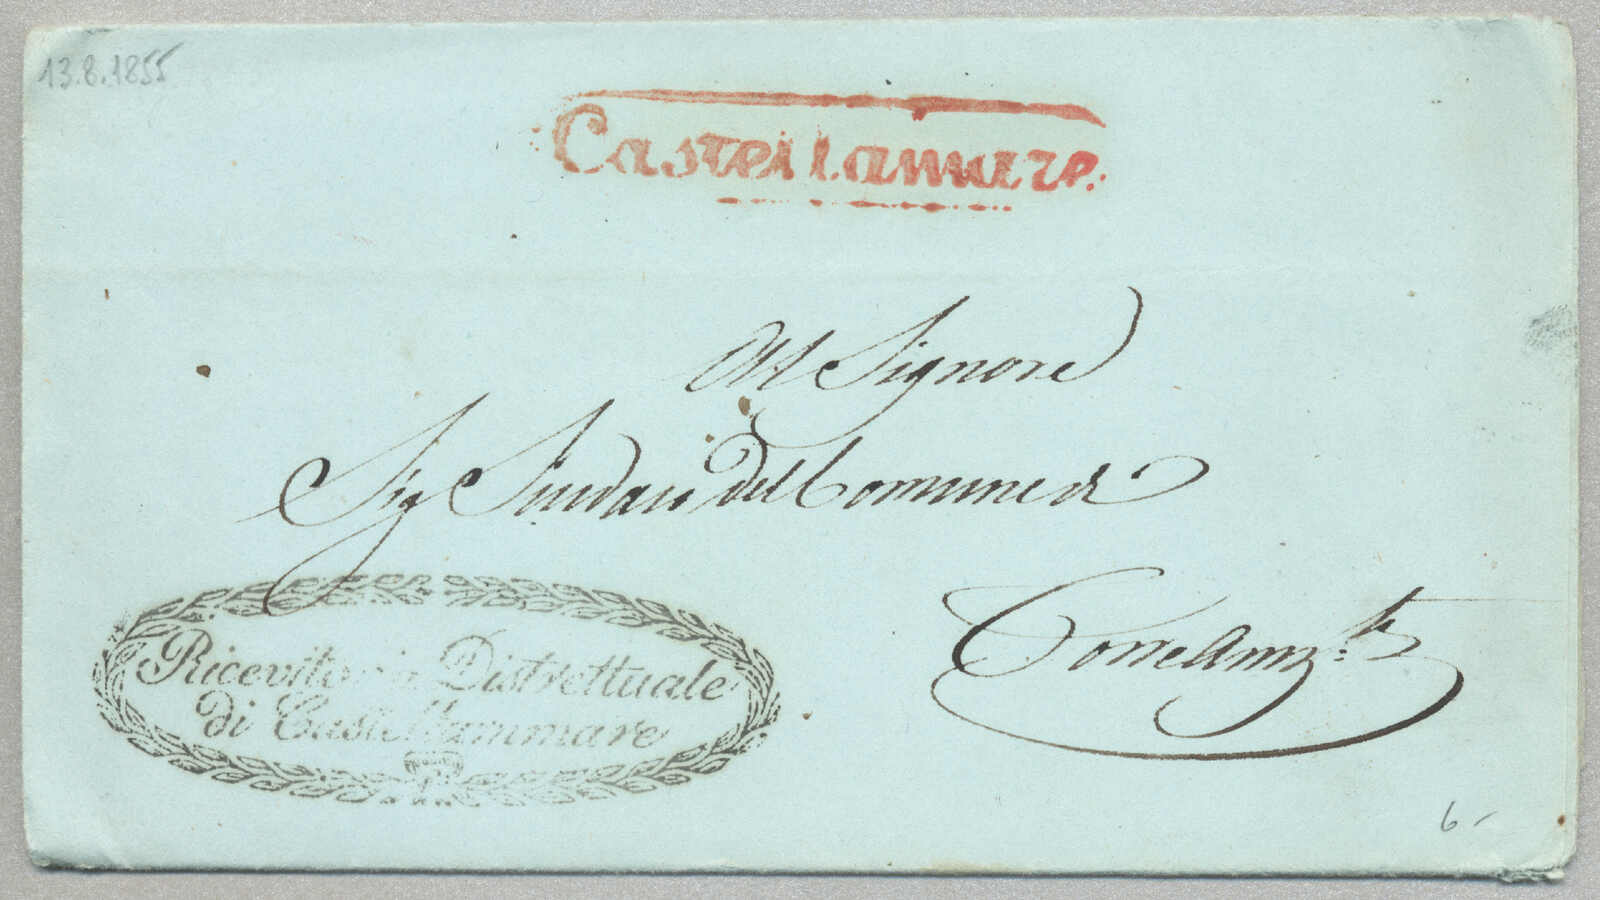 13.8.1855
Castellammare.
Al Signore
Sig Sindaco del Comune di
Torre Annz.ta
Ricevitoria Distrettuale
di Castellammare
6-